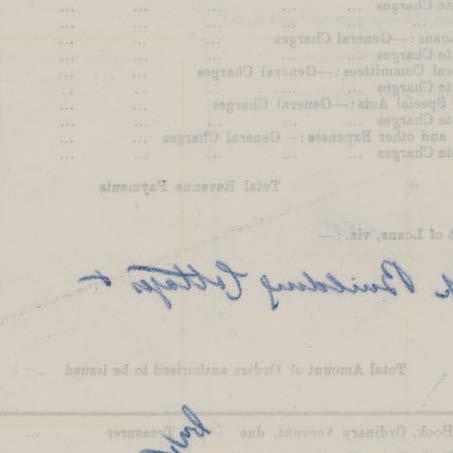 te Charges ... ... ... ...
Loans:—General Charges ... ... ...
te Charges ... ... ... ...
al Committees:—General Charges ... ...
te Charges ... ... ... ...
Special Acts:—General Charges ... ...
te Charges ... ... ... ...
and other Expenses:—General Charges ... ...
te Charges ... ... ... ...
Total Revenue Payments
t of Loans, viz.:—
Building Cottages
Total Amount of Orders authorised to be issued
Book, Ordinary Account, due Treasurer ...